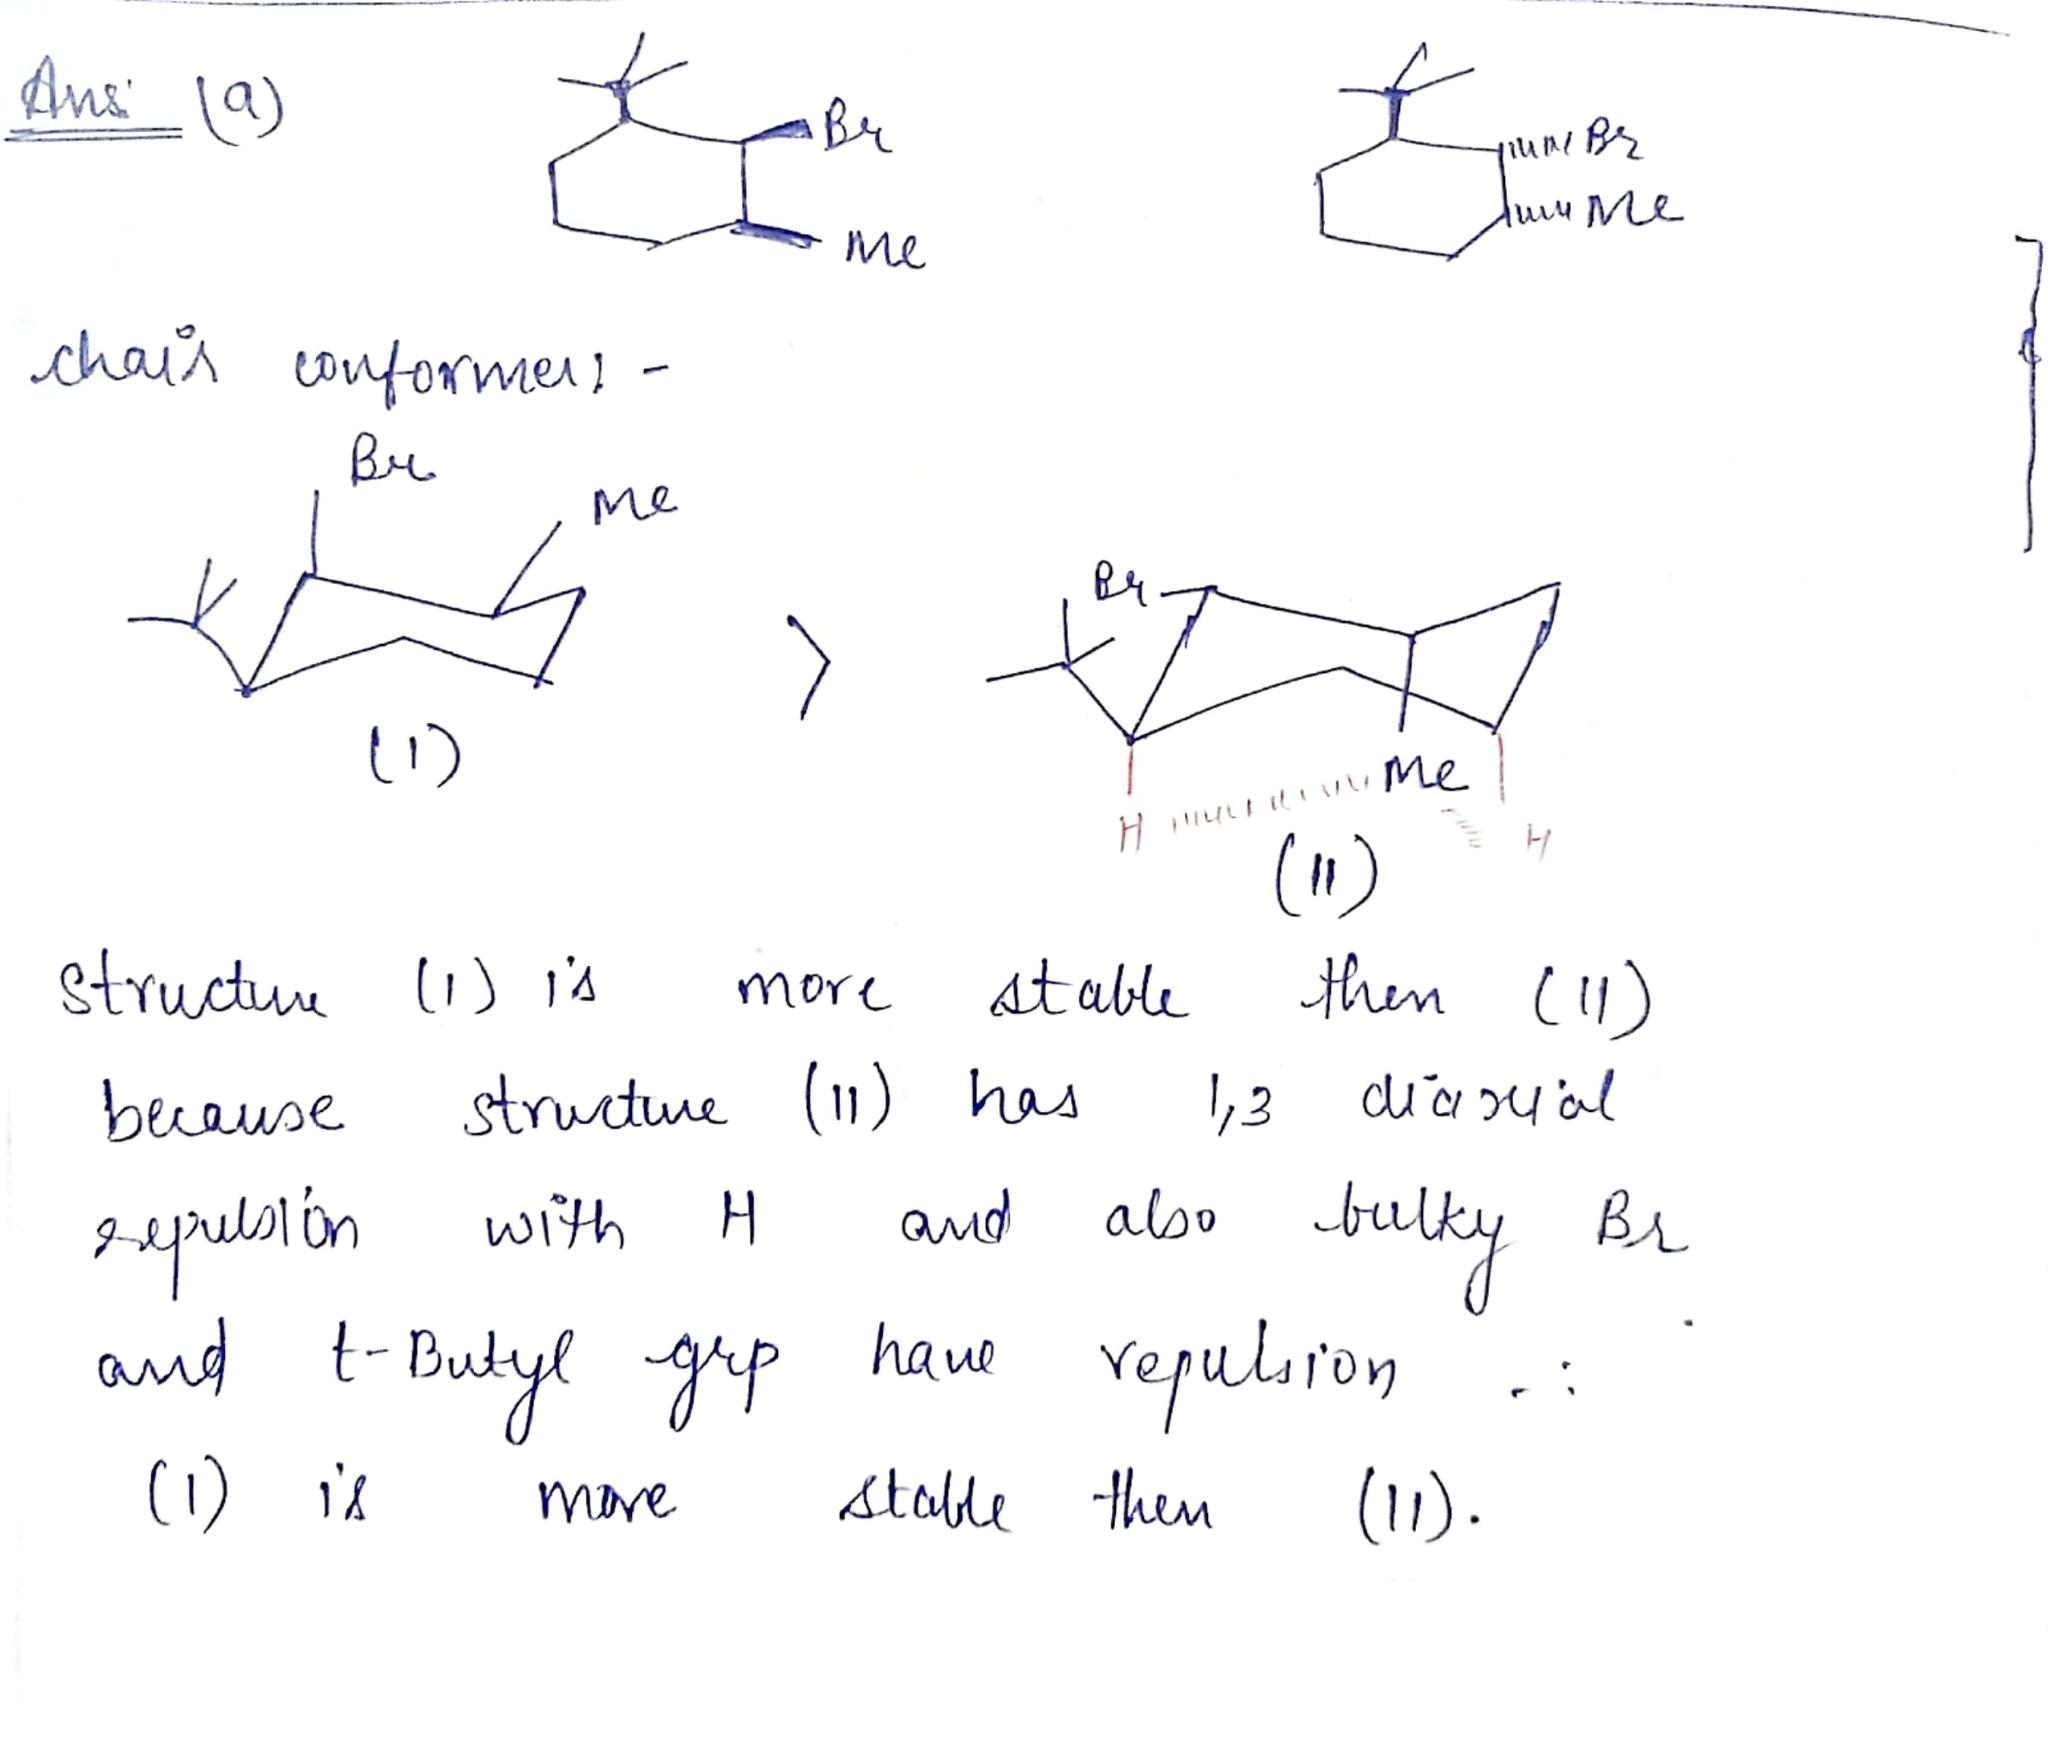 Ans: (a)
Br
Me
Br
Me
chair conformer: -
Br
Me
(I)
>
Br
Me
H
H
(II)
Structure (I) is more stable then (II)
because structure (II) has 1,3 diaxial
repulsion with H and also bulky Br
and t-Butyl grp have repulsion ∴
(I) is more stable then (II).